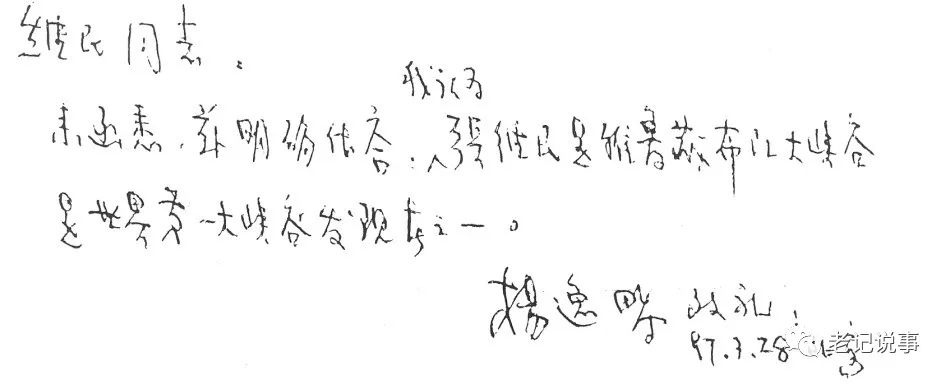 继民同志:
来函悉,兹明确作答:我认为张继民是雅鲁藏布江大峡谷
是世界第一大峡谷发现者之一。
杨逸畴 敬礼!
97.3.28
老记说事